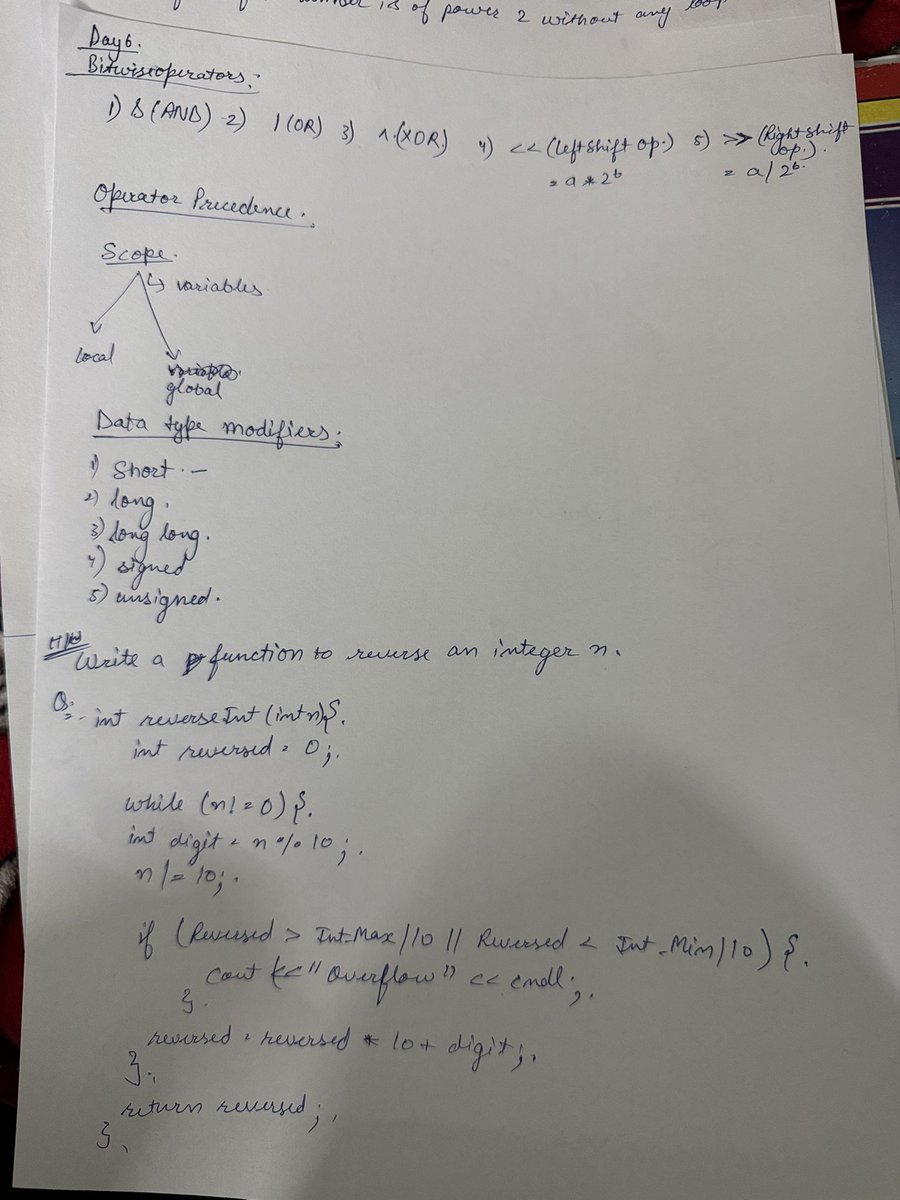 number is of power 2 without any loop
Day 6.
Bitwiseoperators:
1) & (AND) 2) | (OR) 3) ^ (XOR) 4) << (left shift op.) 5) >> (Right shift op.).
= a * 2^b = a / 2^b.
Operator Precedence.
Scope.
↳ variables
local
global
Data type modifiers:
1) Short. -
2) long.
3) long long.
4) signed
5) unsigned.
H/W
Write a function to reverse an integer n.
Q:- int reverseInt (int n) {.
int reversed = 0;.
while (n! = 0) {.
int digit = n % 10;.
n /= 10;.
if (Reversed > Int_Max/10 || Reversed < Int_Min/10) {.
cout << "Overflow" << endl;.
}.
reversed = reversed * 10 + digit;.
}.
return reversed;.
}.